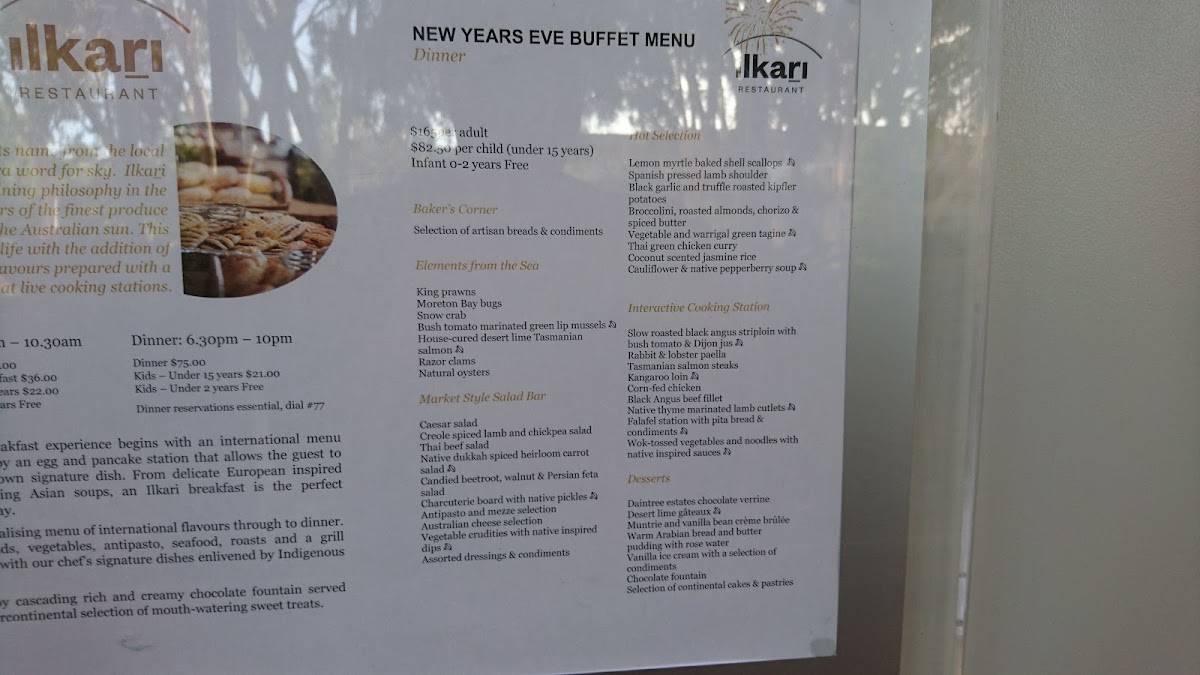 ilkari
RESTAURANT
ts name from the local
a word for sky. Ilkari
ning philosophy in the
rs of the finest produce
he Australian sun. This
life with the addition of
avours prepared with a
at live cooking stations.
– 10.30am
.00
fast $36.00
ears $22.00
ars Free
Dinner: 6.30pm – 10pm
Dinner $75.00
Kids – Under 15 years $21.00
Kids – Under 2 years Free
Dinner reservations essential, dial #77
akfast experience begins with an international menu
by an egg and pancake station that allows the guest to
own signature dish. From delicate European inspired
ing Asian soups, an Ilkari breakfast is the perfect
ay.
alising menu of international flavours through to dinner.
ds, vegetables, antipasto, seafood, roasts and a grill
with our chef's signature dishes enlivened by Indigenous
by cascading rich and creamy chocolate fountain served
rcontinental selection of mouth-watering sweet treats.
NEW YEARS EVE BUFFET MENU
Dinner
ilkari
RESTAURANT
$165 per adult
$82.50 per child (under 15 years)
Infant 0-2 years Free
Baker's Corner
Selection of artisan breads & condiments
Elements from the Sea
King prawns
Moreton Bay bugs
Snow crab
Bush tomato marinated green lip mussels
House-cured desert lime Tasmanian
salmon
Razor clams
Natural oysters
Market Style Salad Bar
Caesar salad
Creole spiced lamb and chickpea salad
Thai beef salad
Native dukkah spiced heirloom carrot
salad
Candied beetroot, walnut & Persian feta
salad
Charcuterie board with native pickles
Antipasto and mezze selection
Australian cheese selection
Vegetable crudities with native inspired
dips
Assorted dressings & condiments
Hot Selection
Lemon myrtle baked shell scallops
Spanish pressed lamb shoulder
Black garlic and truffle roasted kipfler
potatoes
Broccolini, roasted almonds, chorizo &
spiced butter
Vegetable and warrigal green tagine
Thai green chicken curry
Coconut scented jasmine rice
Cauliflower & native pepperberry soup
Interactive Cooking Station
Slow roasted black angus striploin with
bush tomato & Dijon jus
Rabbit & lobster paella
Tasmanian salmon steaks
Kangaroo loin
Corn-fed chicken
Black Angus beef fillet
Native thyme marinated lamb cutlets
Falafel station with pita bread &
condiments
Wok-tossed vegetables and noodles with
native inspired sauces
Desserts
Daintree estates chocolate verrine
Desert lime gâteaux
Muntrie and vanilla bean crème brûlée
Warm Arabian bread and butter
pudding with rose water
Vanilla ice cream with a selection of
condiments
Chocolate fountain
Selection of continental cakes & pastries